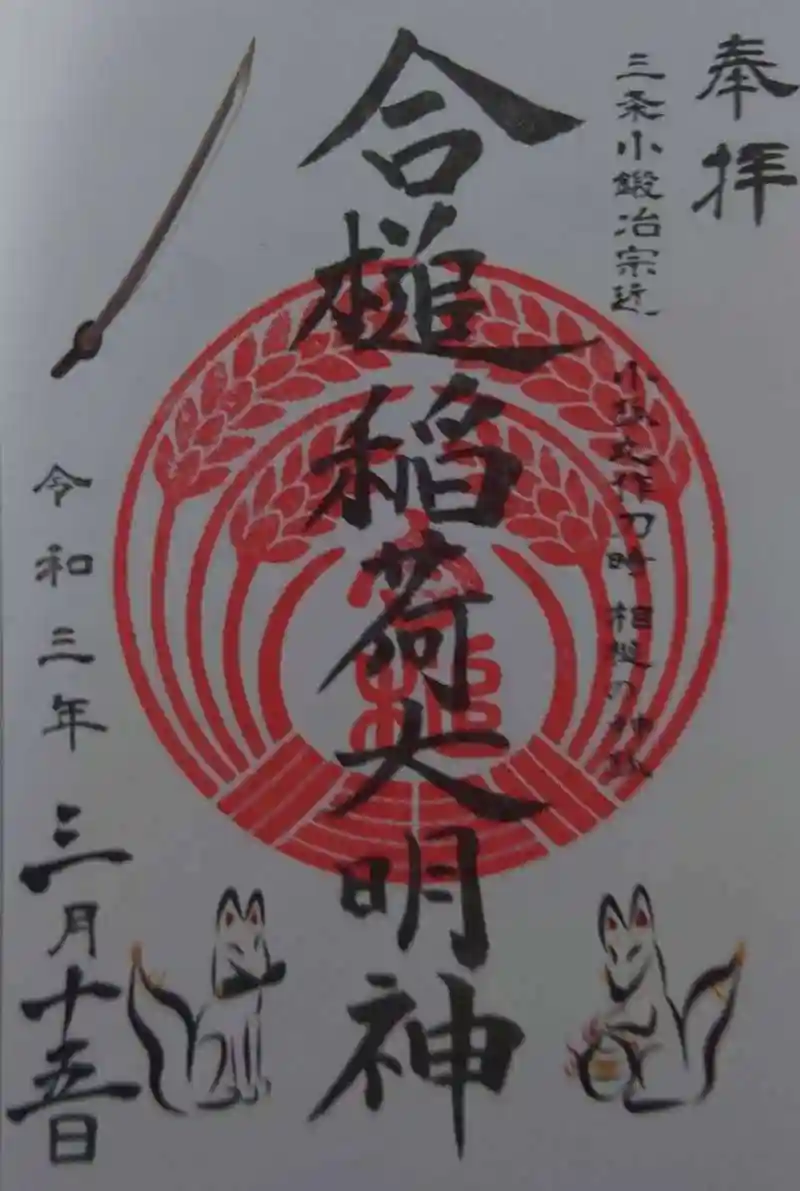 奉拝
三条小鍛冶宗近 小狐丸作刀時 相槌の神狐
合槌稲荷大明神
令和三年
三月十五日